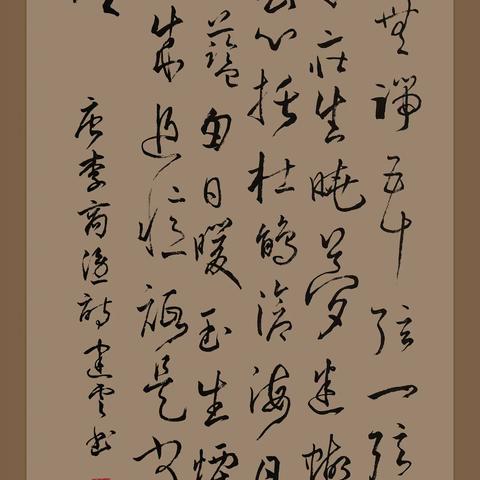 無端五十弦一弦
莊生曉夢迷蝴
心托杜鵑滄海月
藍田日暖玉生煙
成追憶祗是
唐李商隱詩建雲書